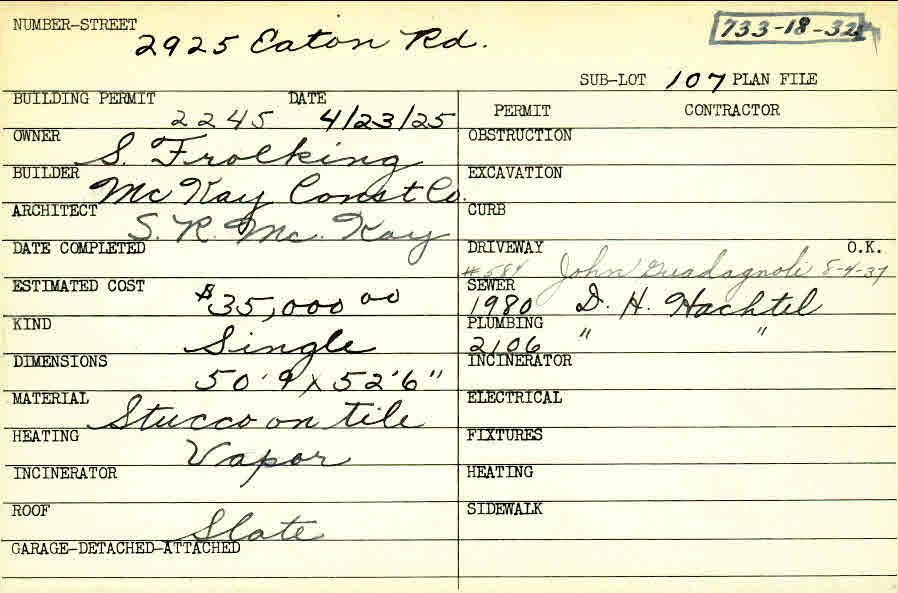 NUMBER-STREET
2925 Eaton Rd.
733-18-32
SUB-LOT 107 PLAN FILE
BUILDING PERMIT DATE
2245 4/23/25
OWNER
S. Frolking
BUILDER
McKay Const Co.
ARCHITECT
S. R. Mc. Kay
DATE COMPLETED
ESTIMATED COST
$35,000 00
KIND
Single
DIMENSIONS
50'9 x 52'6"
MATERIAL
Stucco on tile
HEATING
Vapor
INCINERATOR
ROOF
Slate
GARAGE-DETACHED-ATTACHED
PERMIT CONTRACTOR
OBSTRUCTION
EXCAVATION
CURB
DRIVEWAY O.K.
#584 John Guadagnoli 8-4-37
SEWER
1980 D. H. Hachtel
PLUMBING
2106 " "
INCINERATOR
ELECTRICAL
FIXTURES
HEATING
SIDEWALK